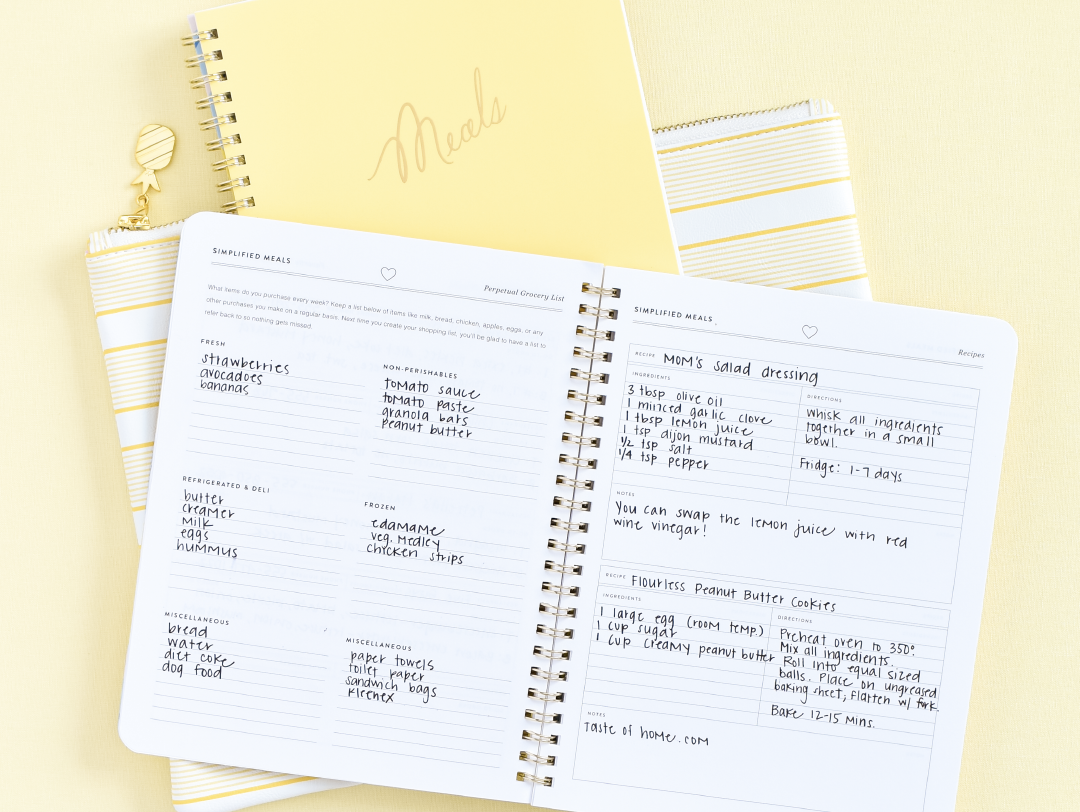 Meals
SIMPLIFIED MEALS
Perpetual Grocery List
What items do you purchase every week? Keep a list below of items like milk, bread, chicken, apples, eggs, or any
other purchases you make on a regular basis. Next time you create your shopping list, you'll be glad to have a list to
refer back to so nothing gets missed.
FRESH
strawberries
avocadoes
bananas
NON-PERISHABLES
tomato sauce
tomato paste
granola bars
peanut butter
REFRIGERATED & DELI
butter
creamer
milk
eggs
hummus
FROZEN
edamame
veg. medley
chicken strips
MISCELLANEOUS
bread
water
diet coke
dog food
MISCELLANEOUS
paper towels
toilet paper
sandwich bags
kleenex
SIMPLIFIED MEALS
Recipes
RECIPE Mom's salad dressing
INGREDIENTS
3 tbsp olive oil
1 minced garlic clove
1 tbsp lemon juice
1 tsp dijon mustard
1/2 tsp salt
1/4 tsp pepper
DIRECTIONS
whisk all ingredients
together in a small
bowl.
Fridge: 1-7 days
NOTES
You can swap the lemon juice with red
wine vinegar!
RECIPE Flourless Peanut Butter Cookies
INGREDIENTS
1 large egg (room temp.)
1 cup sugar
1 cup creamy peanut butter
DIRECTIONS
Preheat oven to 350°.
Mix all ingredients.
Roll into equal sized
balls. Place on ungreased
baking sheet; flatten w/ fork.
Bake 12-15 mins.
NOTES
Taste of home.com